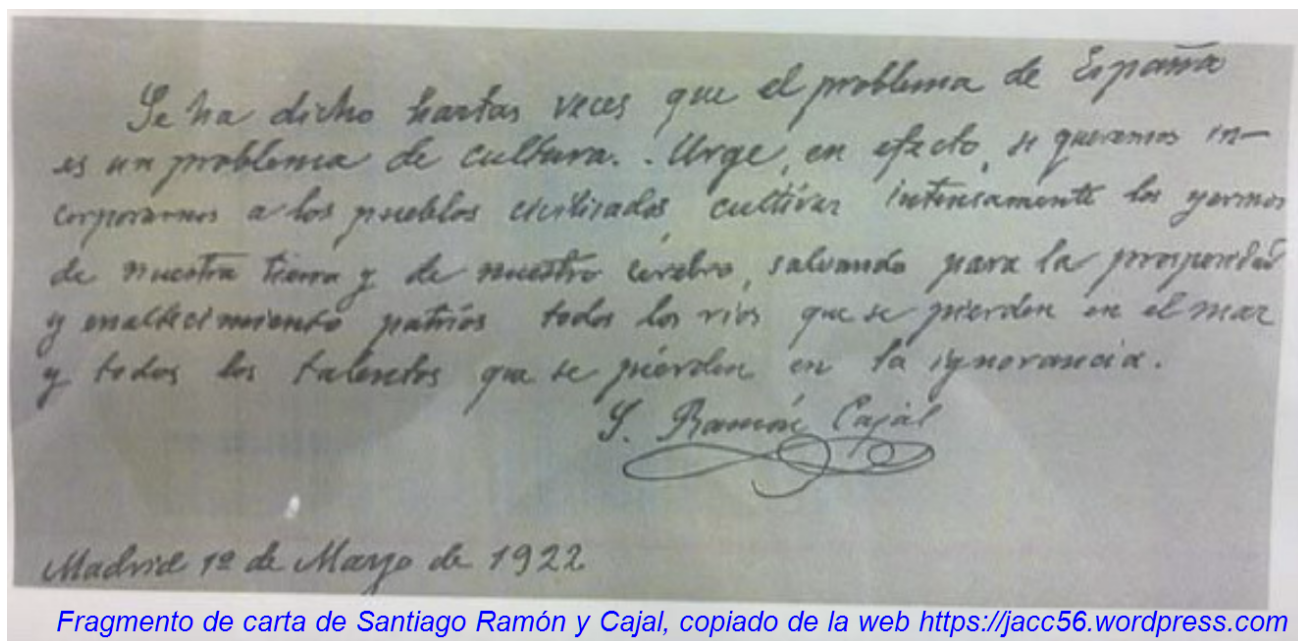 Se ha dicho hartas veces que el problema de España
es un problema de cultura. . Urge, en efecto, si queremos in-
corporarnos a los pueblos civilizados, cultivar intensamente los yermos
de nuestra tierra y de nuestro cerebro, salvando para la prosperidad
y enaltecimiento patrios todos los rios que se pierden en el mar
y todos los talentos que se pierden en la ignorancia.
S. Ramón Cajal
Madrid 1º de Marzo de 1922
Fragmento de carta de Santiago Ramón y Cajal, copiado de la web https://jacc56.wordpress.com